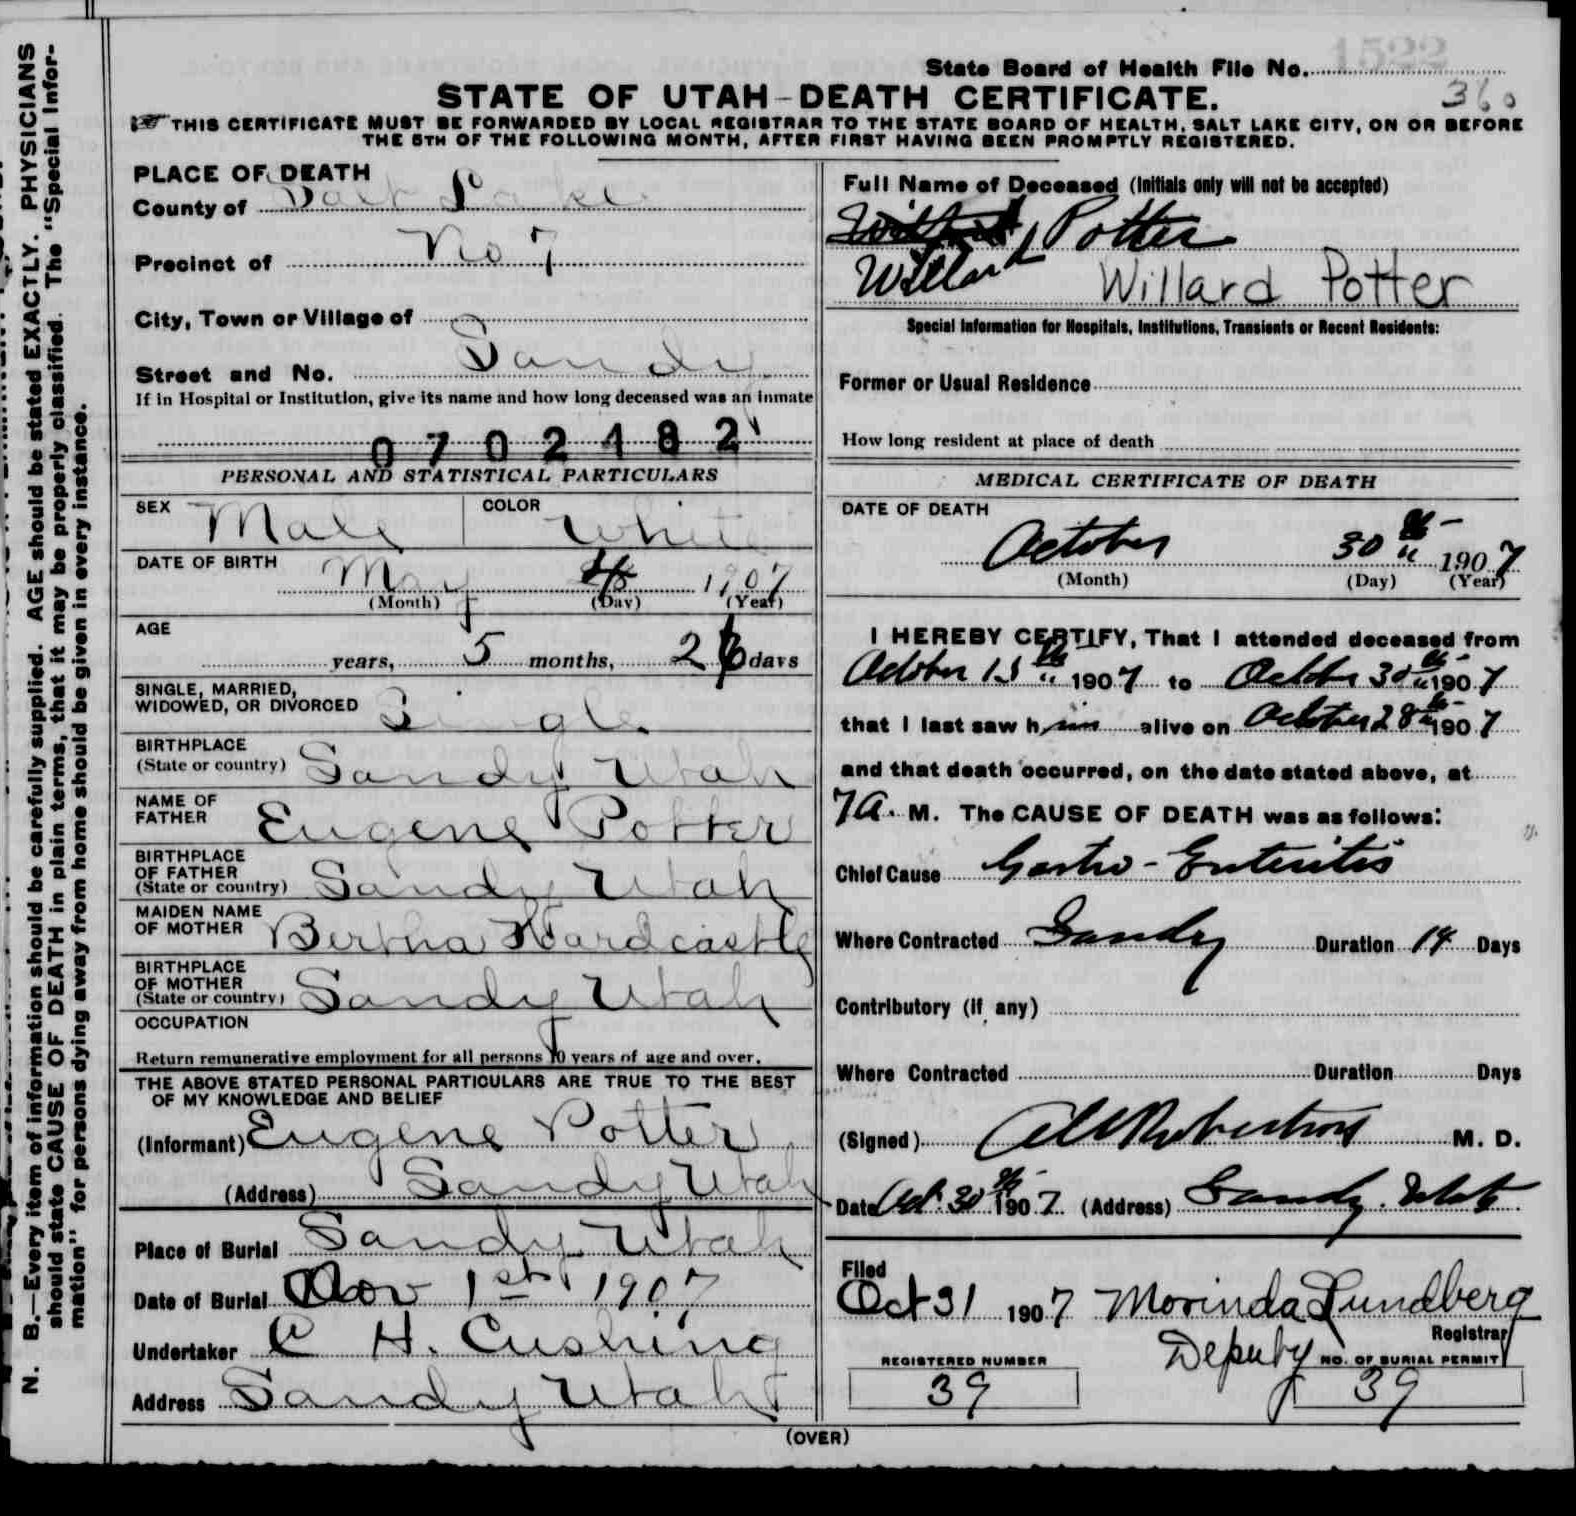 N. B.—Every item of information should be carefully supplied. AGE should be stated EXACTLY. PHYSICIANS
should state CAUSE OF DEATH in plain terms, that it may be properly classified. The "Special Infor-
mation" for persons dying away from home should be given in every instance.
1522
State Board of Health File No.
360
STATE OF UTAH—DEATH CERTIFICATE.
THIS CERTIFICATE MUST BE FORWARDED BY LOCAL REGISTRAR TO THE STATE BOARD OF HEALTH, SALT LAKE CITY, ON OR BEFORE
THE 5TH OF THE FOLLOWING MONTH, AFTER FIRST HAVING BEEN PROMPTLY REGISTERED.
PLACE OF DEATH
County of Salt Lake
Precinct of No 7
City, Town or Village of
Street and No. Sandy
If in Hospital or Institution, give its name and how long deceased was an inmate
0702482
PERSONAL AND STATISTICAL PARTICULARS
SEX Male COLOR White
DATE OF BIRTH May 1907
(Month) (Day) (Year)
AGE
years, 5 months, 26 days
SINGLE, MARRIED,
WIDOWED, OR DIVORCED Single
BIRTHPLACE
(State or country) Sandy Utah
NAME OF
FATHER Eugene Potter
BIRTHPLACE
OF FATHER
(State or country) Sandy Utah
MAIDEN NAME
OF MOTHER Bertha Hardcastle
BIRTHPLACE
OF MOTHER
(State or country) Sandy Utah
OCCUPATION
Return remunerative employment for all persons 10 years of age and over.
THE ABOVE STATED PERSONAL PARTICULARS ARE TRUE TO THE BEST
OF MY KNOWLEDGE AND BELIEF
(Informant) Eugene Potter
(Address) Sandy Utah
Place of Burial Sandy Utah
Date of Burial Nov 1st 1907
Undertaker C H. Cushing
Address Sandy Utah
Full Name of Deceased (Initials only will not be accepted)
Potter
Willard Willard Potter
Special Information for Hospitals, Institutions, Transients or Recent Residents:
Former or Usual Residence
How long resident at place of death
MEDICAL CERTIFICATE OF DEATH
DATE OF DEATH
October 30th 1907
(Month) (Day) (Year)
I HEREBY CERTIFY, That I attended deceased from
October 15th 1907 to October 30th 1907
that I last saw him alive on October 28th 1907
and that death occurred, on the date stated above, at
7 A. M. The CAUSE OF DEATH was as follows:
Chief Cause Gastro-Enteritis
Where Contracted Sandy Duration 14 Days
Contributory (if any)
Where Contracted Duration Days
(Signed) Robertson M. D.
Date Oct. 30th 1907 (Address) Sandy. Utah
Filed
Oct 31 1907 Morinda Lundberg
Deputy Registrar
REGISTERED NUMBER NO. OF BURIAL PERMIT
39 39
(OVER)